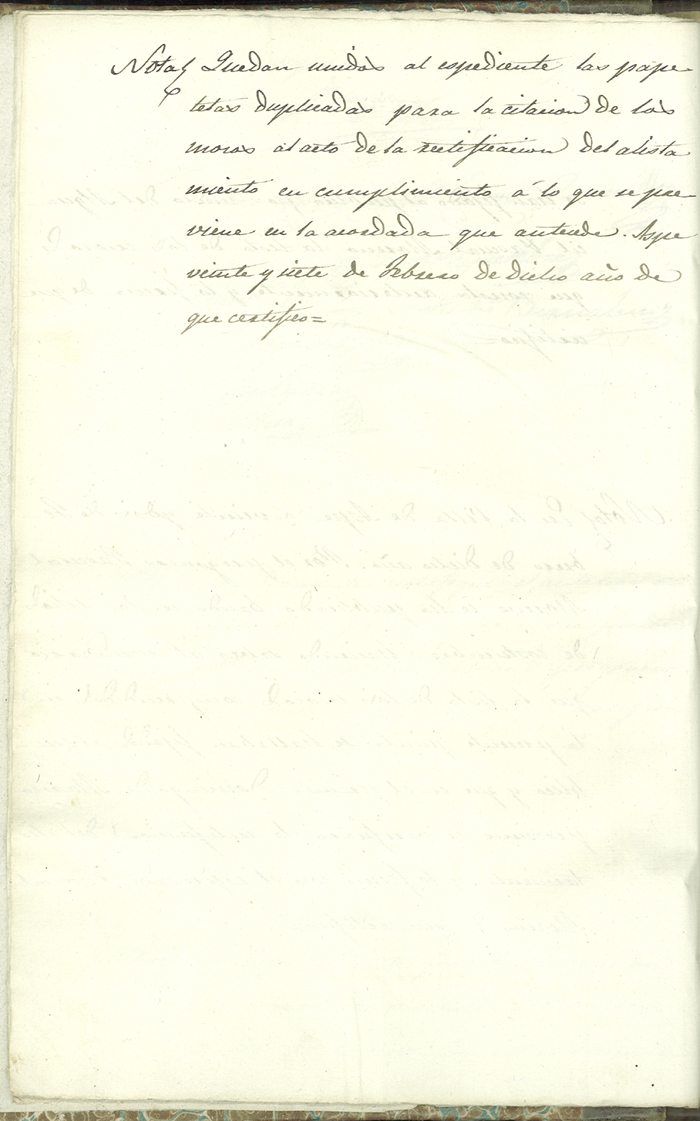 Nota} Quedan unidas al espediente las pape
letas duplicadas para la citacion de los
mozos al acto de la rectificacion del alista
miento en cumplimiento á lo que se pre
viene en la acordada que antecede. Aspe
veinte y siete de Febrero de dicho año de
que certifico=